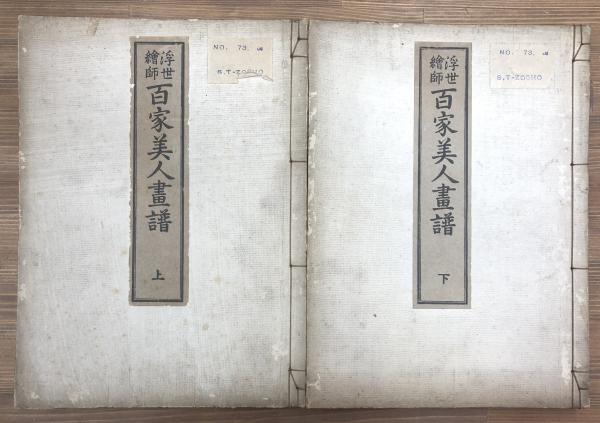 浮世
繪師
百家美人畫譜
上
NO. 73.
S.T-ZOSHO
浮世
繪師
百家美人畫譜
下
NO. 73.
S.T-ZOSHO